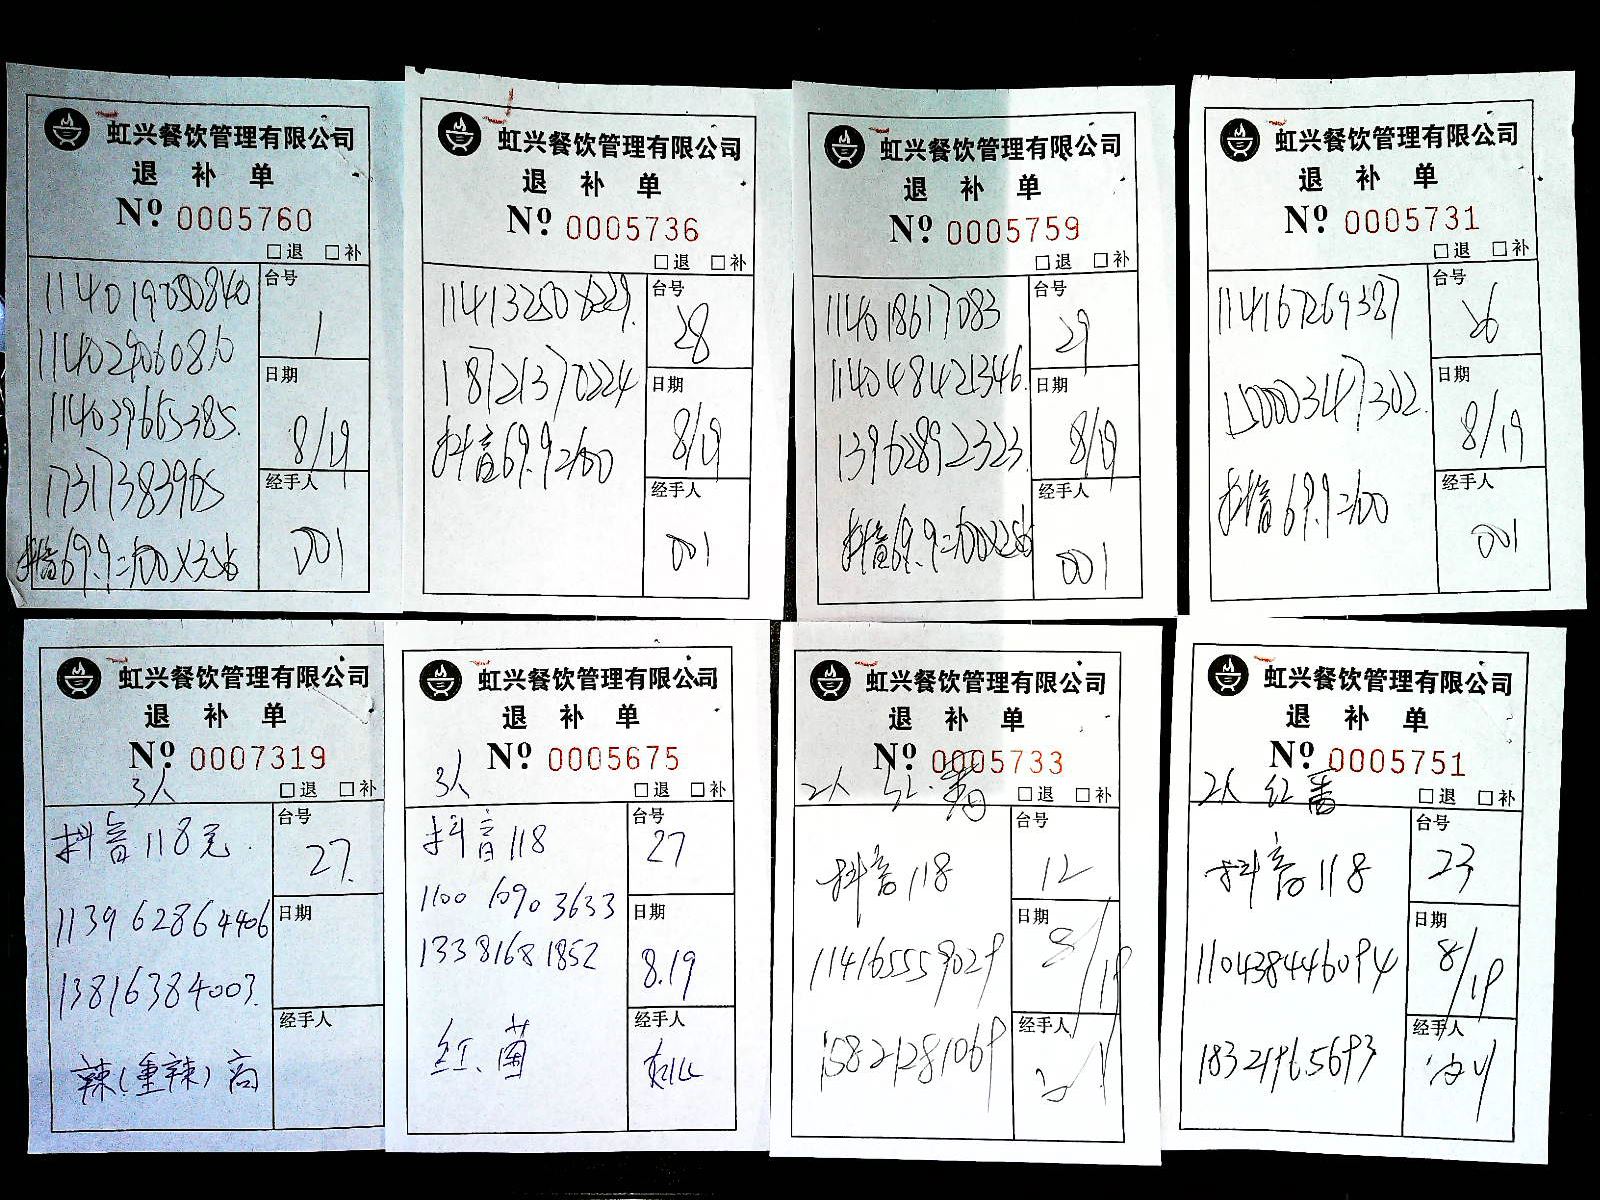 虹兴餐饮管理有限公司
退 补 单
Nº 0005760
□退 □补
台号
1
114019050840
114039665385.
日期
8/19
17317383965
经手人
001
抖音69.9=100X3张
虹兴餐饮管理有限公司
退 补 单
Nº 0005736
□退 □补
台号
28
18721370224
日期
8/19
抖音69.9=100
经手人
001
虹兴餐饮管理有限公司
退 补 单
Nº 0005759
□退 □补
114018617083
台号
29
114048421346.
日期
8/19
13962892323.
经手人
001
抖音69.9=100X2张
虹兴餐饮管理有限公司
退 补 单
Nº 0005731
□退 □补
114167269387
台号
26
15000347302.
日期
8/19
抖音69.9=100
经手人
001
虹兴餐饮管理有限公司
退 补 单
Nº 0007319
3人
□退 □补
抖音118元.
台号
27.
113962864406
日期
13816384003.
经手人
辣(重辣) 高
虹兴餐饮管理有限公司
退 补 单
Nº 0005675
3人
□退 □补
抖音118
台号
27
1100 1090 3633
日期
8.19
13381681852
经手人
红.菌
虹兴餐饮管理有限公司
退 补 单
Nº 0005733
2人 红.番
□退 □补
抖音118
台号
12
114165559029
日期
8/19
15821281069
经手人
虹兴餐饮管理有限公司
退 补 单
Nº 0005751
2人 红番
□退 □补
抖音118
台号
23
110438446094
日期
8/19
18321965693
经手人